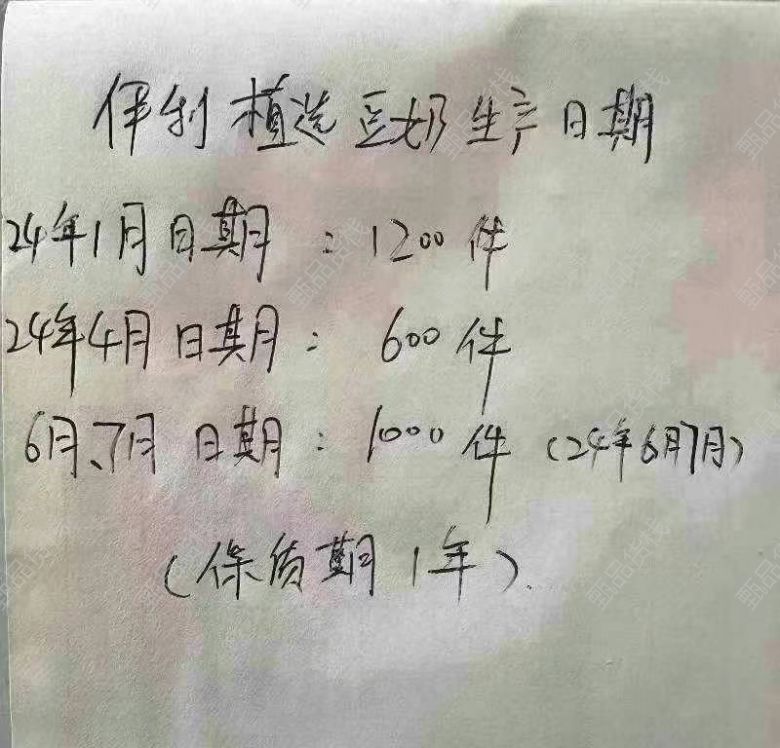 伊利植选豆奶生产日期
24年1月日期：1200件
24年4月日期：600件
6月、7月日期：1000件（24年6月7月）
（保质期1年）.